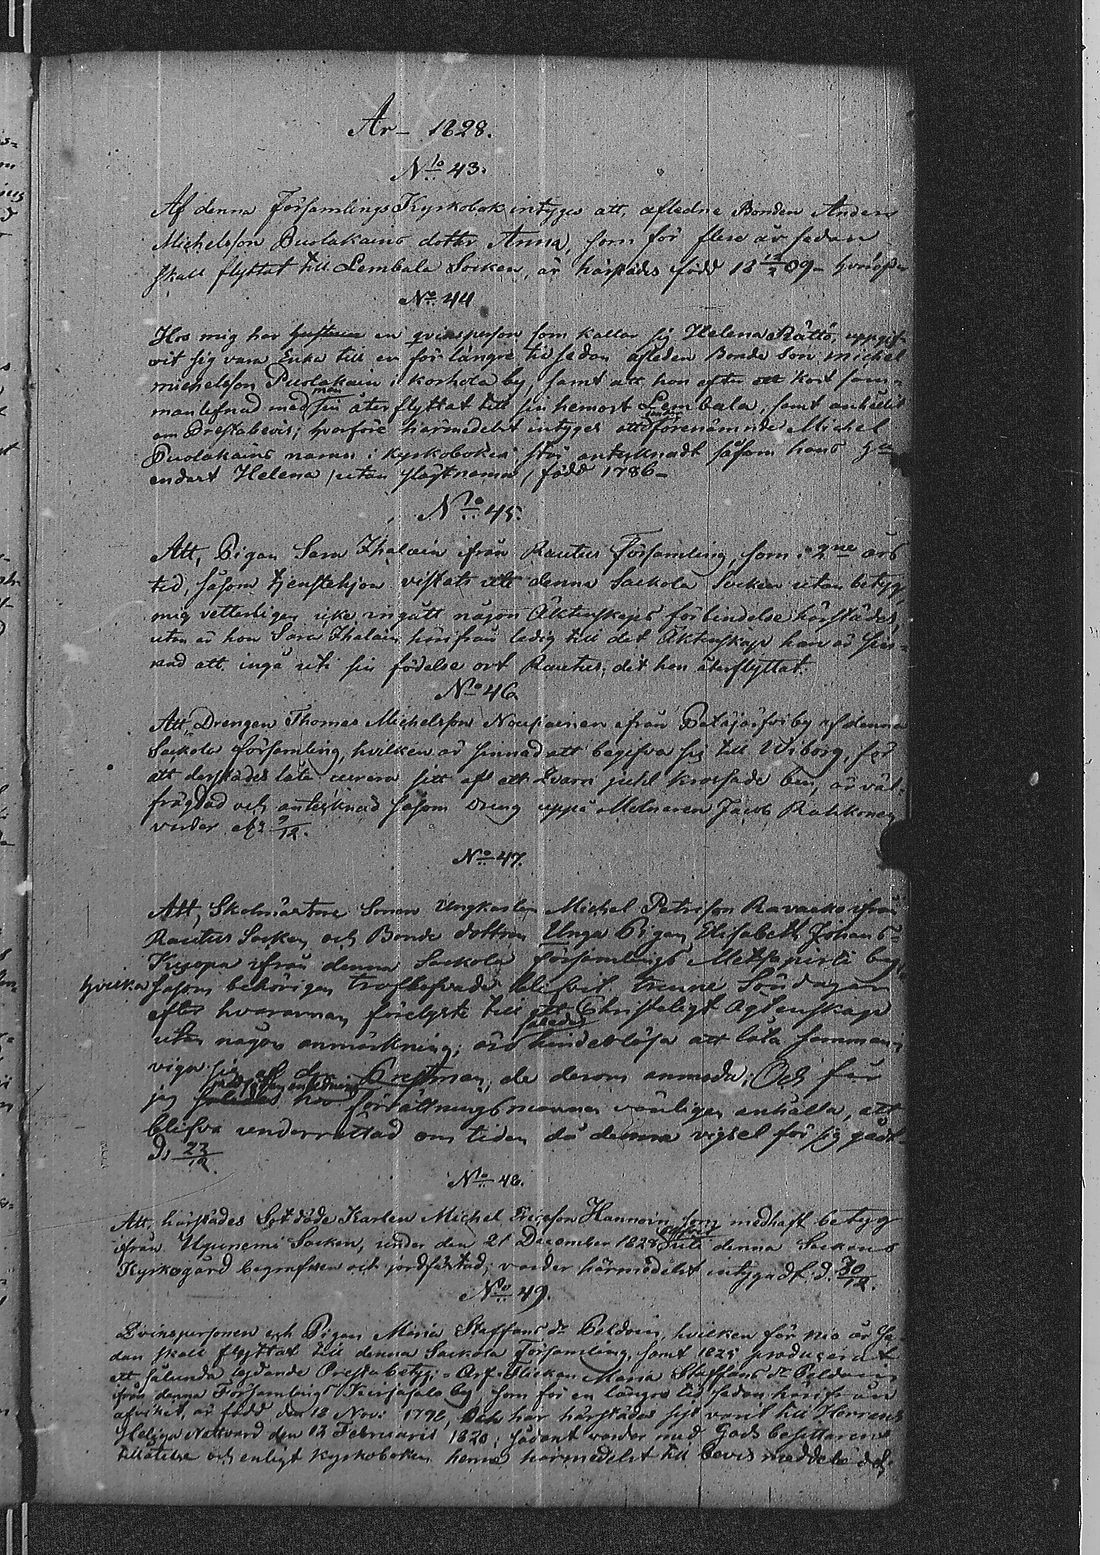 År 1828.
No 43.
Af denna Församlings Kyrkobok intygas att, aflidne Bonden Anders
Michelsson Puolakains dotter Anna, som för flere år sedan
skall flyttat till Lembala Socken, är härstädes född 18 12/2 09
No 44
Hos mig har en qvinsperson som kallar sig Helena Rättö, uppgif-
vit sig vara Enka till en för längre tid sedan afleden Bonde son Michel
Michelsson Puolakain i korhola by, samt att hon efter kort sam-
manlefnad med sin man återflyttat till sin hemort Lembala, samt anhållit
om Prestabevis; hvarföre härmedelst intygas att förenämnde Michel
Puolakains namn i kyrkoboken står antecknadt såsom hans
endast Helena /utan slägtnamn/ född 1786
No 45.
Att, Pigan Sara Ihalain ifrån Rautus Församling som i 2ne års
tid, såsom tjenstehjon vistats uti denna Sackola Socken utan betyg,
mig vetterligen icke ingått någon Äktenskaps förbindelse härstädes,
utan är hon Sara Ihalain härifrån ledig till det Äktenskap hon är sin-
nad att ingå uti sin födelse ort Rautus, dit hon återflyttat.
No 46
Att, Drengen Thomas Michelsson Nousiainen ifrån by af denna
Sackola församling, hvilken är sinnad att begifva sig till Wiborg, för
att derstädes låta curera sitt af ett hjul krossade ben, är väl-
frägdad och antecknad såsom dreng uppå Jacob Rahkonen
varder af: 9/12.
No 47.
Att, Skolmästare Sonen Ungkarlen Michel Petersson Ravasko ifrån
Rautus Socken och Bonde dottren Unga Pigan Elisabeth Johans
Kuoppa ifrån denna Sackola församlings Metsäpirti by,
hvilka såsom behörigen trolofvade blifvit trenne Söndagar
efter hvarannan förelyste till ett Christeligt Ägtenskap
utan någon anmärkning; äro således hinderlösa att låta samman
viga sig af den Prestman, de derom anmoda, Och får
jag hos förrättningsmannen vänligen anhålla, att
blifva underrättad om tiden då denna vigsel för sig gått
d. 23/12.
No 48.
Att, härstädes Sot döde Karlen Michel Ericsson Hannoin, som medhaft betyg
ifrån Socken, under den 21 December 1828 blifvit uti denna Sockens
Kyrkogård begrafven och jordfästad; varder härmedelst intygadt d. 30/12.
No 49.
Qvinspersonen och Pigan Maria Staffans dr Peldoin, hvilken för nio år se-
dan skall flyttat till denna Sackola Församling, samt 1825 producerat
ett sålunda lydande Prestabetyg: Flickan Maria Staffans dr Peldoin
ifrån denna Församlings by, som för en längre tid sedan härifrån
afvikit, är född den 18 Nov: 1792, Och har härstädes sist varit till Herrans
Heliga Nattvard den 12 Februarii 1820; sådant varder med Gods besittarens
tillåtelse och enligt kyrkoboken henne härmedelst till bevis meddeladt.